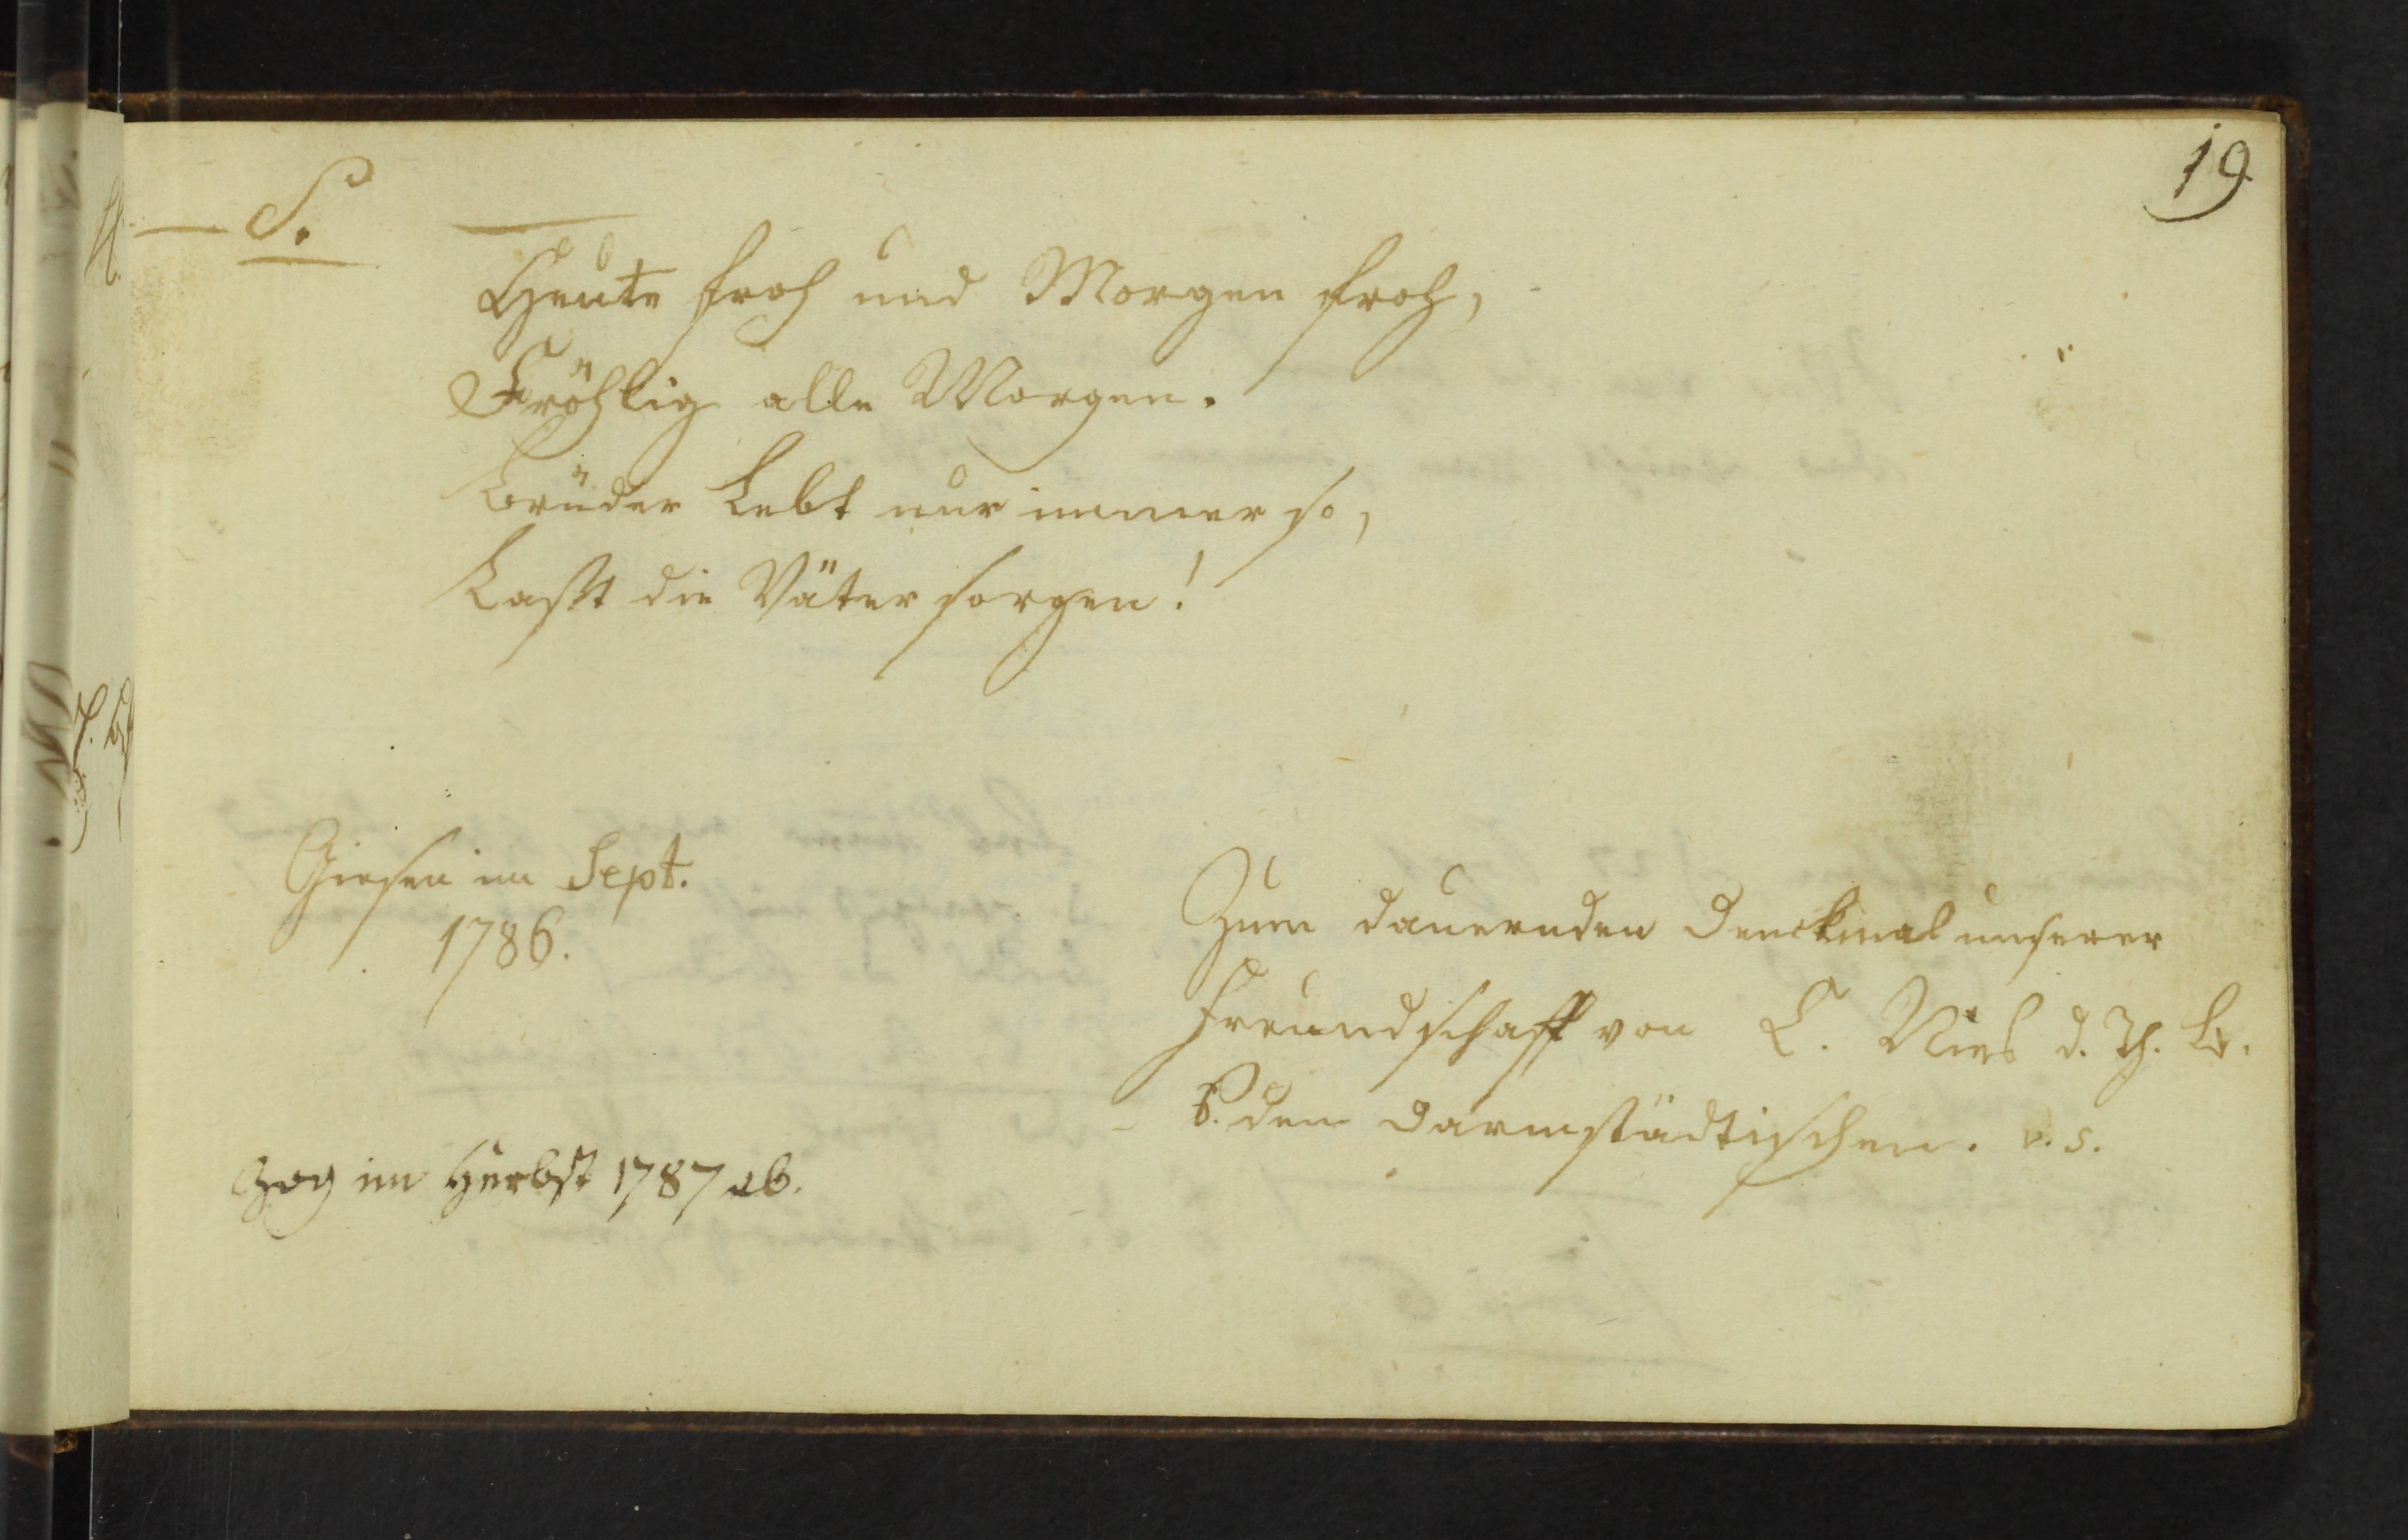 19
S.
Heute froh und Morgen froh,
Fröhlig alle Morgen.
Brüder Lebt nur immer so,
Laßt die Väter sorgen!
Giesen im Sept.
1786.
Zum dauernden Denckmal unserer
Freundschafft von L. Nies d. Th. B.
den Darmstädtischen. v. s.
Zog im Herbst 1787 ab.